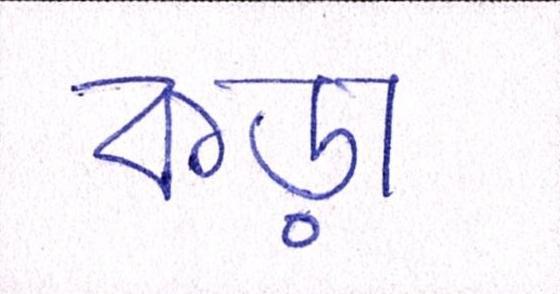 কড়া